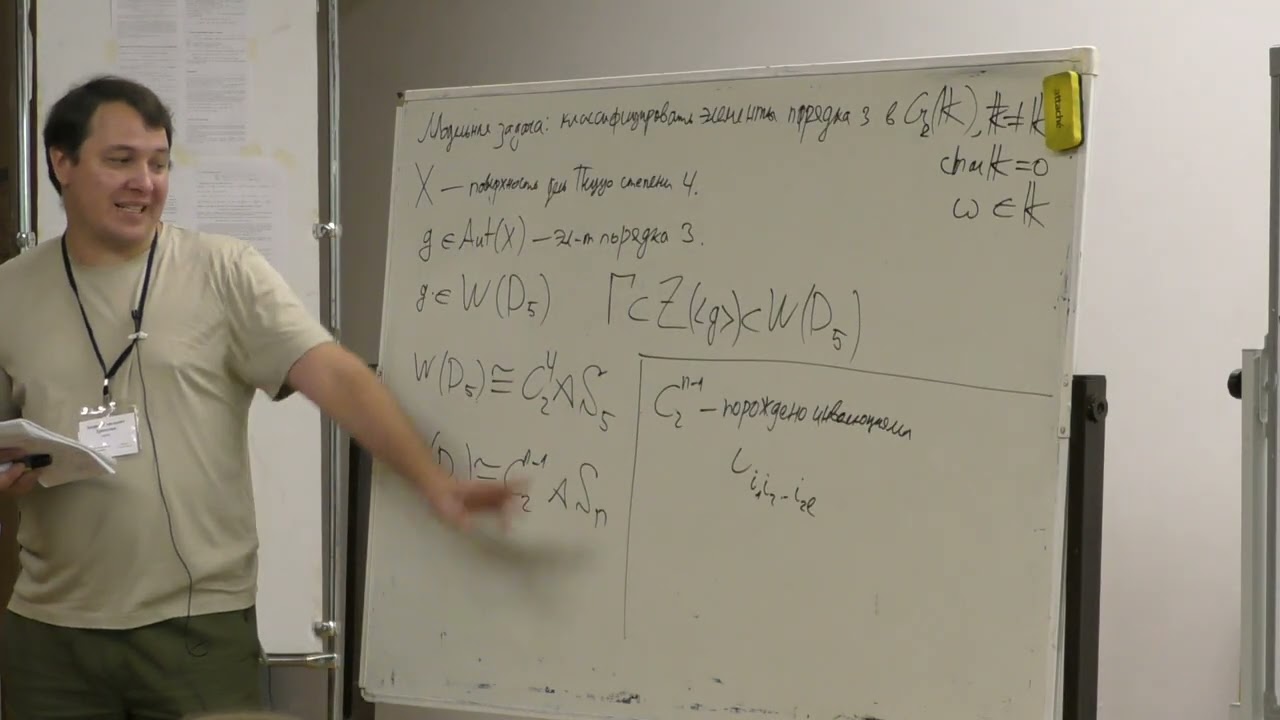 Модельная задача: классифицировать элементы порядка 3 в Cr₂(𝕜), 𝕜≠𝕜
char 𝕜=0
ω ∈ 𝕜
X — поверхность дель Пеццо степени 4.
g ∈ Aut(X) — эл-т порядка 3.
g ∈ W(D₅) Γ ⊂ Z(<g>) ⊂ W(D₅)
W(D₅) ≅ C₂⁴ ⋊ S₅
(D ) ≅ C₂ⁿ⁻¹ ⋊ Sₙ
C₂ⁿ⁻¹ — порождено инволюциями
ι_{i₁i₂...i₂ₗ}
attache